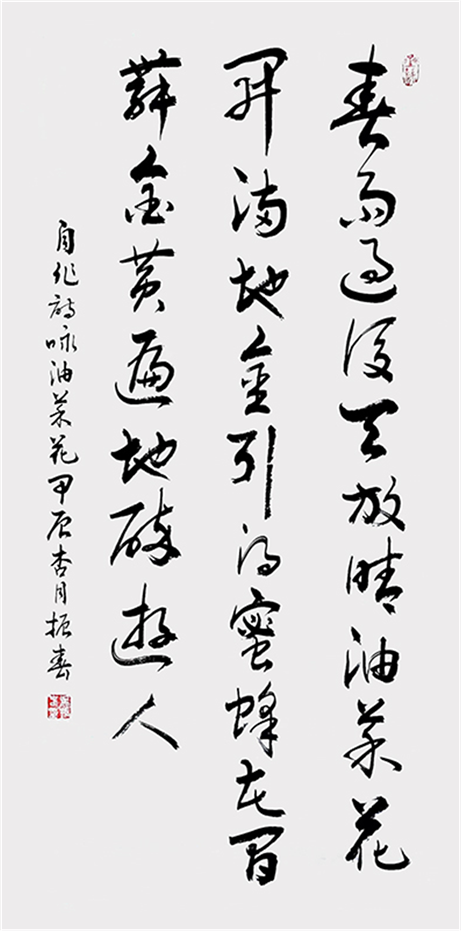 春雨過後天放晴油菜花
開滿地金引得蜜蜂花間
舞金黃遍地醉遊人
自作詩咏油菜花甲辰杏月振春